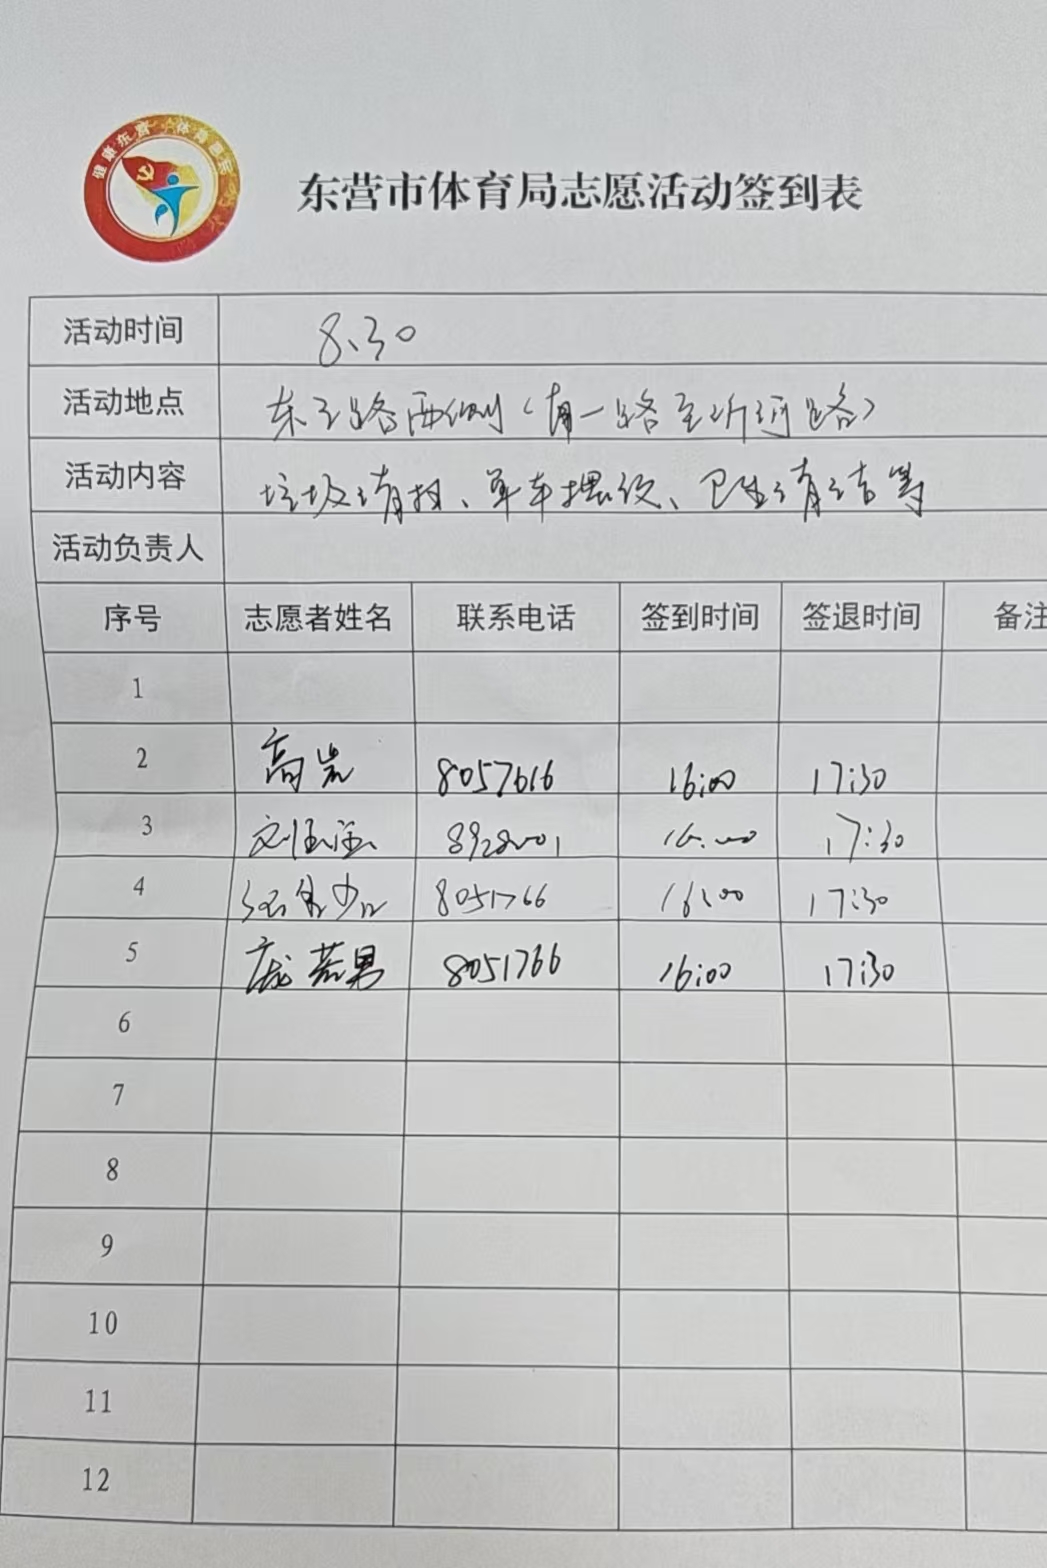 东营市体育局志愿活动签到表
活动时间 8.30
活动地点 东三路西侧（南一路至沂河路）
活动内容 垃圾清扫、单车摆放、卫生清洁等
活动负责人
序号 志愿者姓名 联系电话 签到时间 签退时间 备注
1
2 高岩 8057616 16:00 17:30
3 8928001 16:00 17:30
4 8051766 16:00 17:30
5 庞若男 8051766 16:00 17:30
6
7
8
9
10
11
12